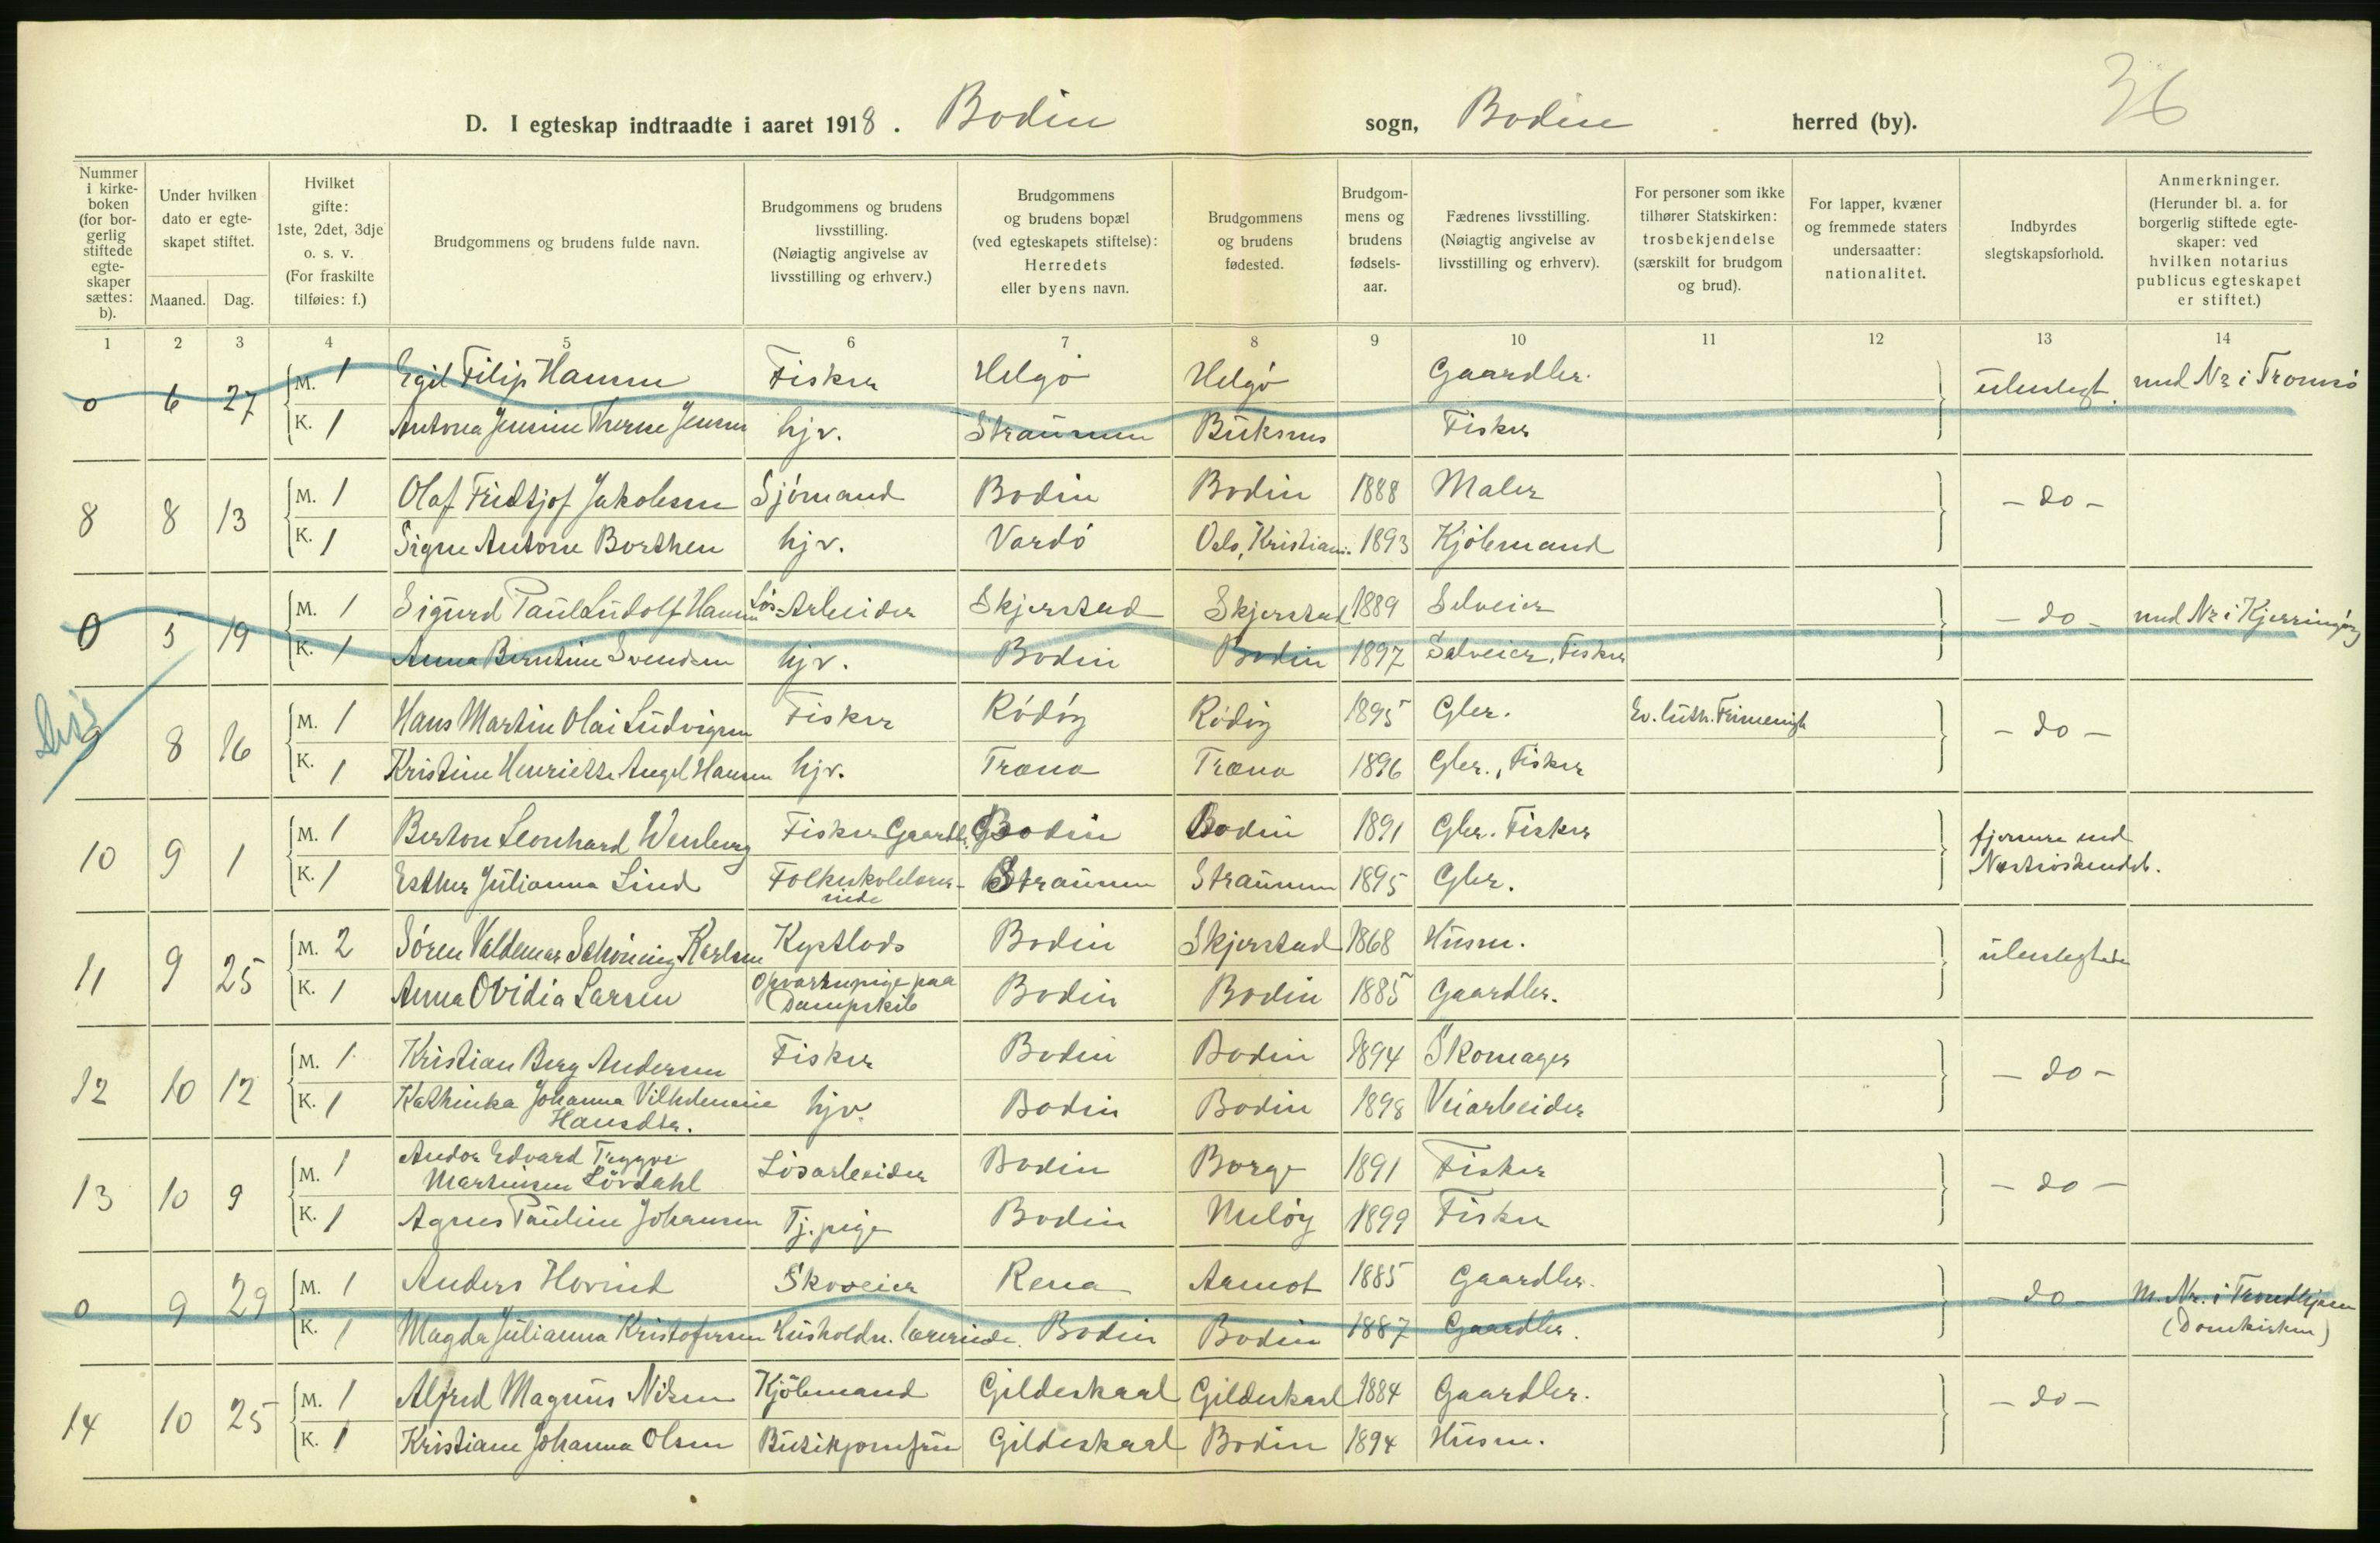 36
D. I egteskap indtraadte i aaret 1918. Bodin sogn, Bodin herred (by).
Nummer i kirke-boken (for bor-gerlig stiftede egte-skaper sættes: b).
Under hvilken dato er egte-skapet stiftet.
Maaned. Dag.
Hvilket gifte: 1ste, 2det, 3dje o. s. v. (For fraskilte tilføies: f.)
Brudgommens og brudens fulde navn.
Brudgommens og brudens livsstilling. (Nøiagtig angivelse av livsstilling og erhverv.)
Brudgommens og brudens bopæl (ved egteskapets stiftelse): Herredets eller byens navn.
Brudgommens og brudens fødested.
Brudgom-mens og brudens fødsels-aar.
Fædrenes livsstilling. (Nøiagtig angivelse av livsstilling og erhverv).
For personer som ikke tilhører Statskirken: trosbekjendelse (særskilt for brudgom og brud).
For lapper, kvæner og fremmede staters undersaatter: nationalitet.
Indbyrdes slegtskapsforhold.
Anmerkninger. (Herunder bl. a. for borgerlig stiftede egte-skaper: ved hvilken notarius publicus egteskapet er stiftet.)
1 2 3 4 5 6 7 8 9 10 11 12 13 14
0 6 27 M. 1 Egil Filip Hansen Fisker Helgö Helgö Gaardbr. ubeslegt. med No i Tromsö
K. 1 Antona Jensine Therese Jensen hjv. Straumen Buksnes Fisker
8 8 13 M. 1 Olaf Fridtjof Jakobsen Sjömand Bodin Bodin 1888 Maler - do -
K. 1 Signe Antone Borthen hjv. Vardö Oslo, Kristiania. 1893 Kjöbmand
0 5 19 M. 1 Sigurd Paul Ludolf Hansen Lös-Arbeider Skjerstad Skjerstad 1889 Selveier - do - med No i Kjerringöy
K. 1 Anna Berntine Svendsen hjv. Bodin Bodin 1897 Selveier, Fisker
9 8 16 M. 1 Hans Martin Olai Ludvigsen Fisker Rödöy Rödöy 1895 Gbr. Ev. luth. Frimenigh - do -
K. 1 Kristine Henriette Angel Hansen hjv. Træna Træna 1896 Gbr., Fisker
10 9 1 M. 1 Berton Leonhard Wenberg Fisker Gaardbr. Bodin Bodin 1891 Gbr. Fisker fjernere end Næstsöskendeb.
K. 1 Esther Julianna Lind Folkeskolelærer-inde Straumen Straumen 1895 Gbr.
11 9 25 M. 2 Sören Valdemar Schöning Karlsen Kystlods Bodin Skjerstad 1868 Husm. ubeslegtede
K. 1 Anna Ovidia Larsen Opvartnpige paa Dampskib Bodin Bodin 1885 Gaardbr.
12 10 12 M. 1 Kristian Berg Andersen Fisker Bodin Bodin 1894 Skomager - do -
K. 1 Kathinka Johanna Vilhelmine Hansdtr. hjv. Bodin Bodin 1898 Veiarbeider
13 10 9 M. 1 Andor Edvard Trygve Martinsen Lövdahl Lösarbeider Bodin Borge 1891 Fisker - do -
K. 1 Agnes Pauline Johansen Tj. pige Bodin Melöy 1899 Fisker
0 9 29 M. 1 Anders Hovind Skoveier Rena Aamot 1885 Gaardbr. - do - m. Nr. i Trondhjem (Domkirken)
K. 1 Magda Julianna Kristofersen Husholdn. lærerinde. Bodin Bodin 1887 Gaardbr.
14 10 25 M. 1 Alfred Magnus Nilsen Kjöbmand Gildeskaal Gildeskaal 1884 Gaardbr. - do -
K. 1 Kristiane Johanna Olsen Butikjomfru Gildeskaal Bodin 1894 Husm.